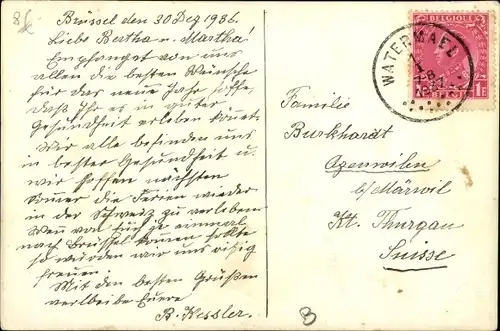 Brüssel den 30 Dez 1936.
Liebe Bertha u. Martha!
Empfanget von uns
allen die besten Wünsche
für das neue Jahr hoffe,
dass Ihr es in guter
Gesundheit erleben könnt.
Wir alle befinden uns
in bester Gesundheit u.
wir hoffen nächsten
Sommer die Ferien wieder
in der Schweiz zu verleben
Wenn von Euch je einmal
nach Brüssel kommen sollte
so würden wir uns riesig
freuen.
Mit den besten Grüßen
verbleibe Euere
B. Kessler.
BELGIQUE
1F
WATERMAEL
1937
Familie
Burkhardt
Azenwilen
b/Märwil
Kt. Thurgau
Suisse
B